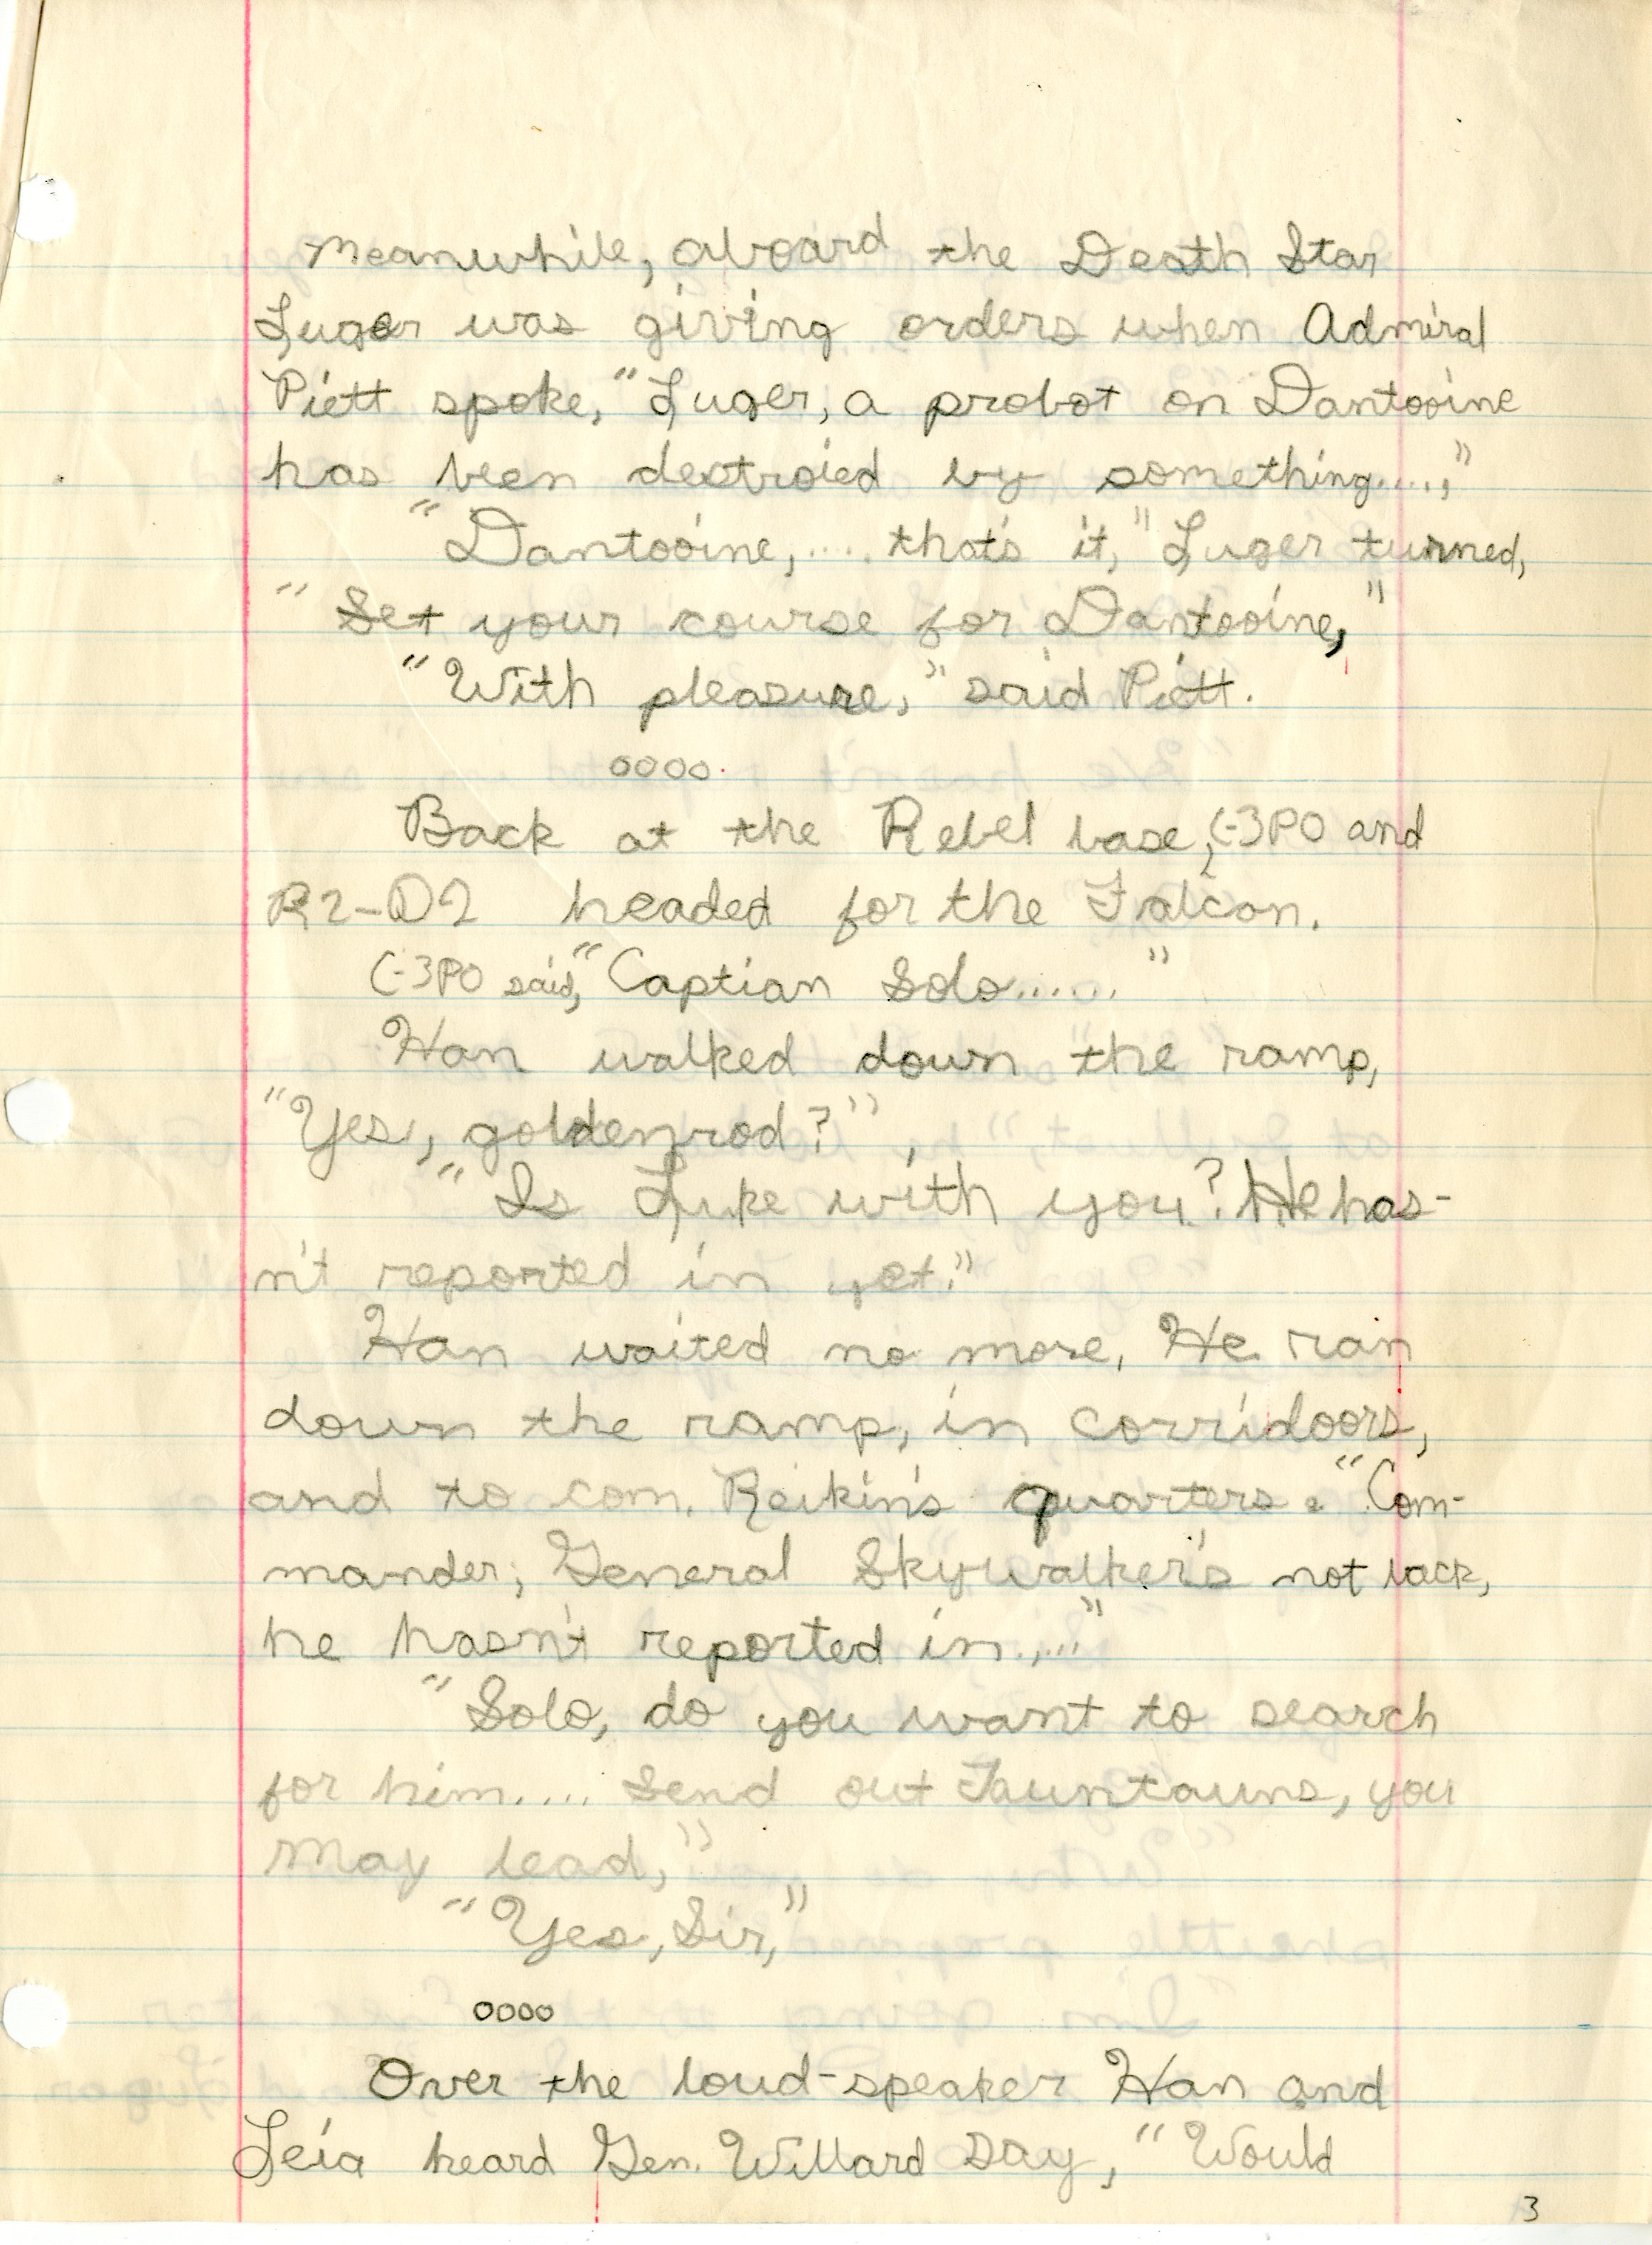 Meanwhile, aboard the Death Star
Luger was giving orders when Admiral
Piett spoke, "Luger, a probot on Dantooine
has been destroied by something....,"
"Dantooine,.... that's it," Luger turned,
"Set your course for Dantooine,"
"With pleasure," said Piett.
oooo
Back at the Rebel base, C-3PO and
R2-D2 headed for the Falcon.
C-3PO said, "Captian Solo......"
Han walked down the ramp,
"Yes, goldenrod?"
"Is Luke with you? He has-
n't reported in yet."
Han waited no more, He ran
down the ramp, in corridoors,
and to com. Reikin's quarters. "Com-
mander, General Skywalker's not back,
he hasn't reported in....."
"Solo, do you want to search
for him.... Send out Tauntauns, you
may lead,"
"Yes, Sir,"
oooo
Over the loud-speaker Han and
Leia heard Gen. Willard say, "Would
3